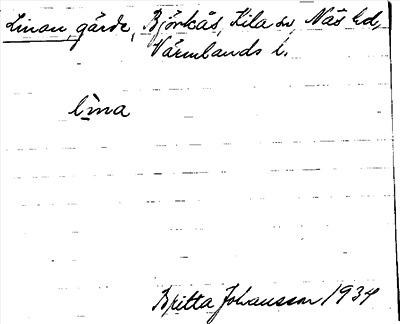 Linan, gärde, Björkås, Kila sn, Näs hd,
Värmlands l.
lìna
Britta Johansson 1934